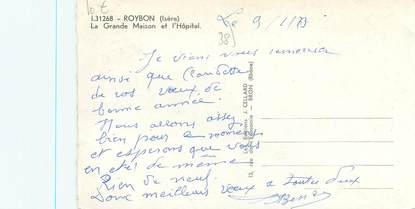 10 €
I.31268 - ROYBON (Isère)
La Grande Maison et l'Hôpital.
38
9/1/73
Je viens vous remercier
ainsi que Claudette
de vos vœux de
bonne année.
Nous allons assez
bien pour le moment
et espérons que vous
en etes de même
Rien de neuf.
Doux meilleurs vœux a toutes deux
Editions J. CELLARD
BRON (Rhône)